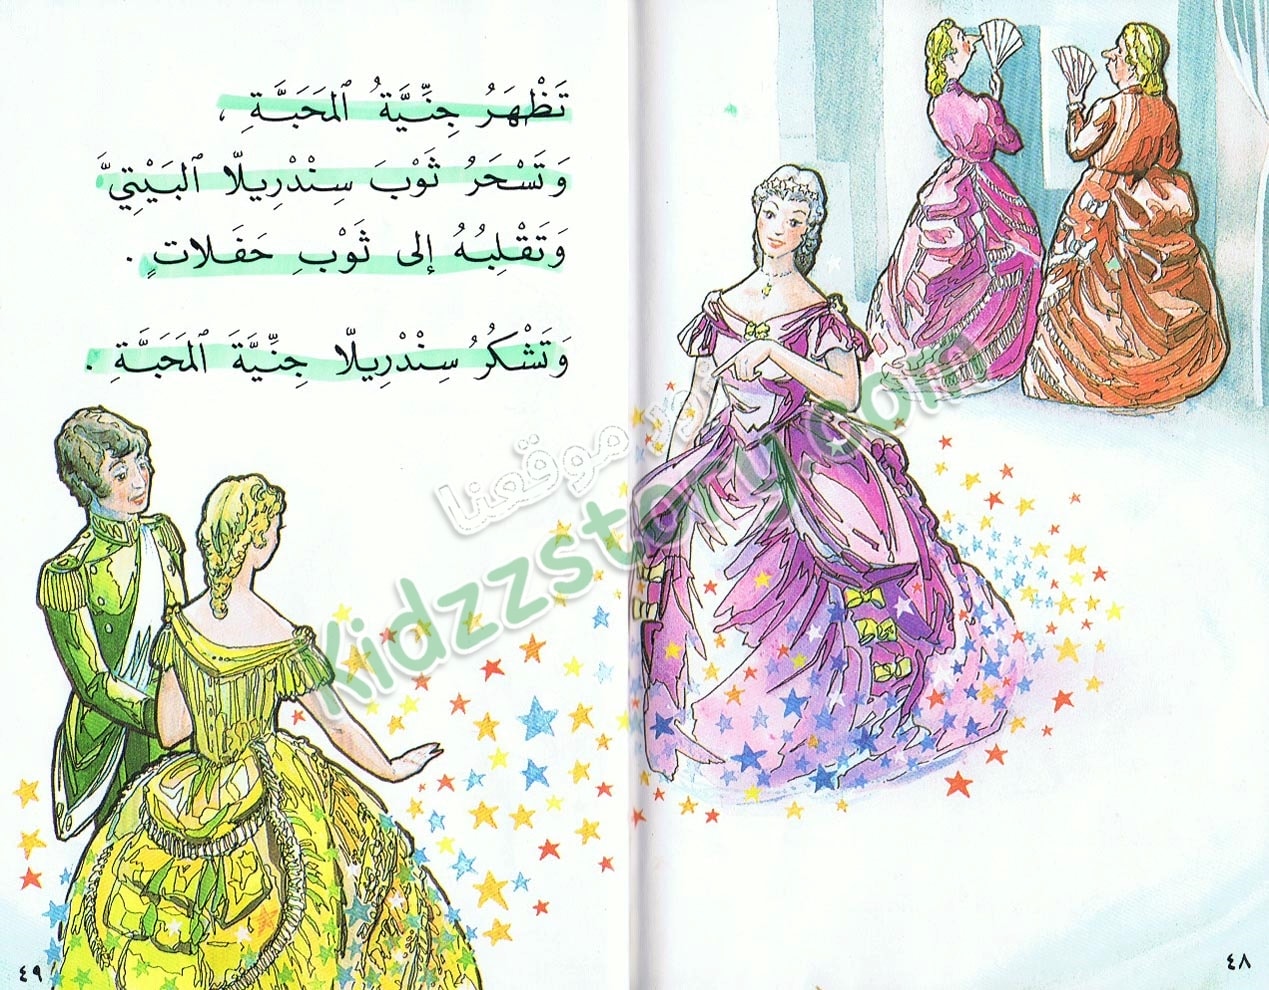 تَظْهَرُ جِنِّيَّةُ ٱلمَحَبَّةِ ،
وَتَسْحَرُ ثَوْبَ سِنْدْرِيلّا ٱلبَيْتِيَّ
وَتَقْلِبُهُ إلى ثَوْبِ حَفَلاتٍ .
وَتَشْكُرُ سِنْدْرِيلّا جِنِّيَّةَ ٱلمَحَبَّةِ .
موقعنا
Kidzzstory.com
٤٨
٤٩